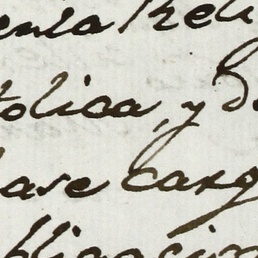 enta Reli
tolica, y d
lase carg
bligacion